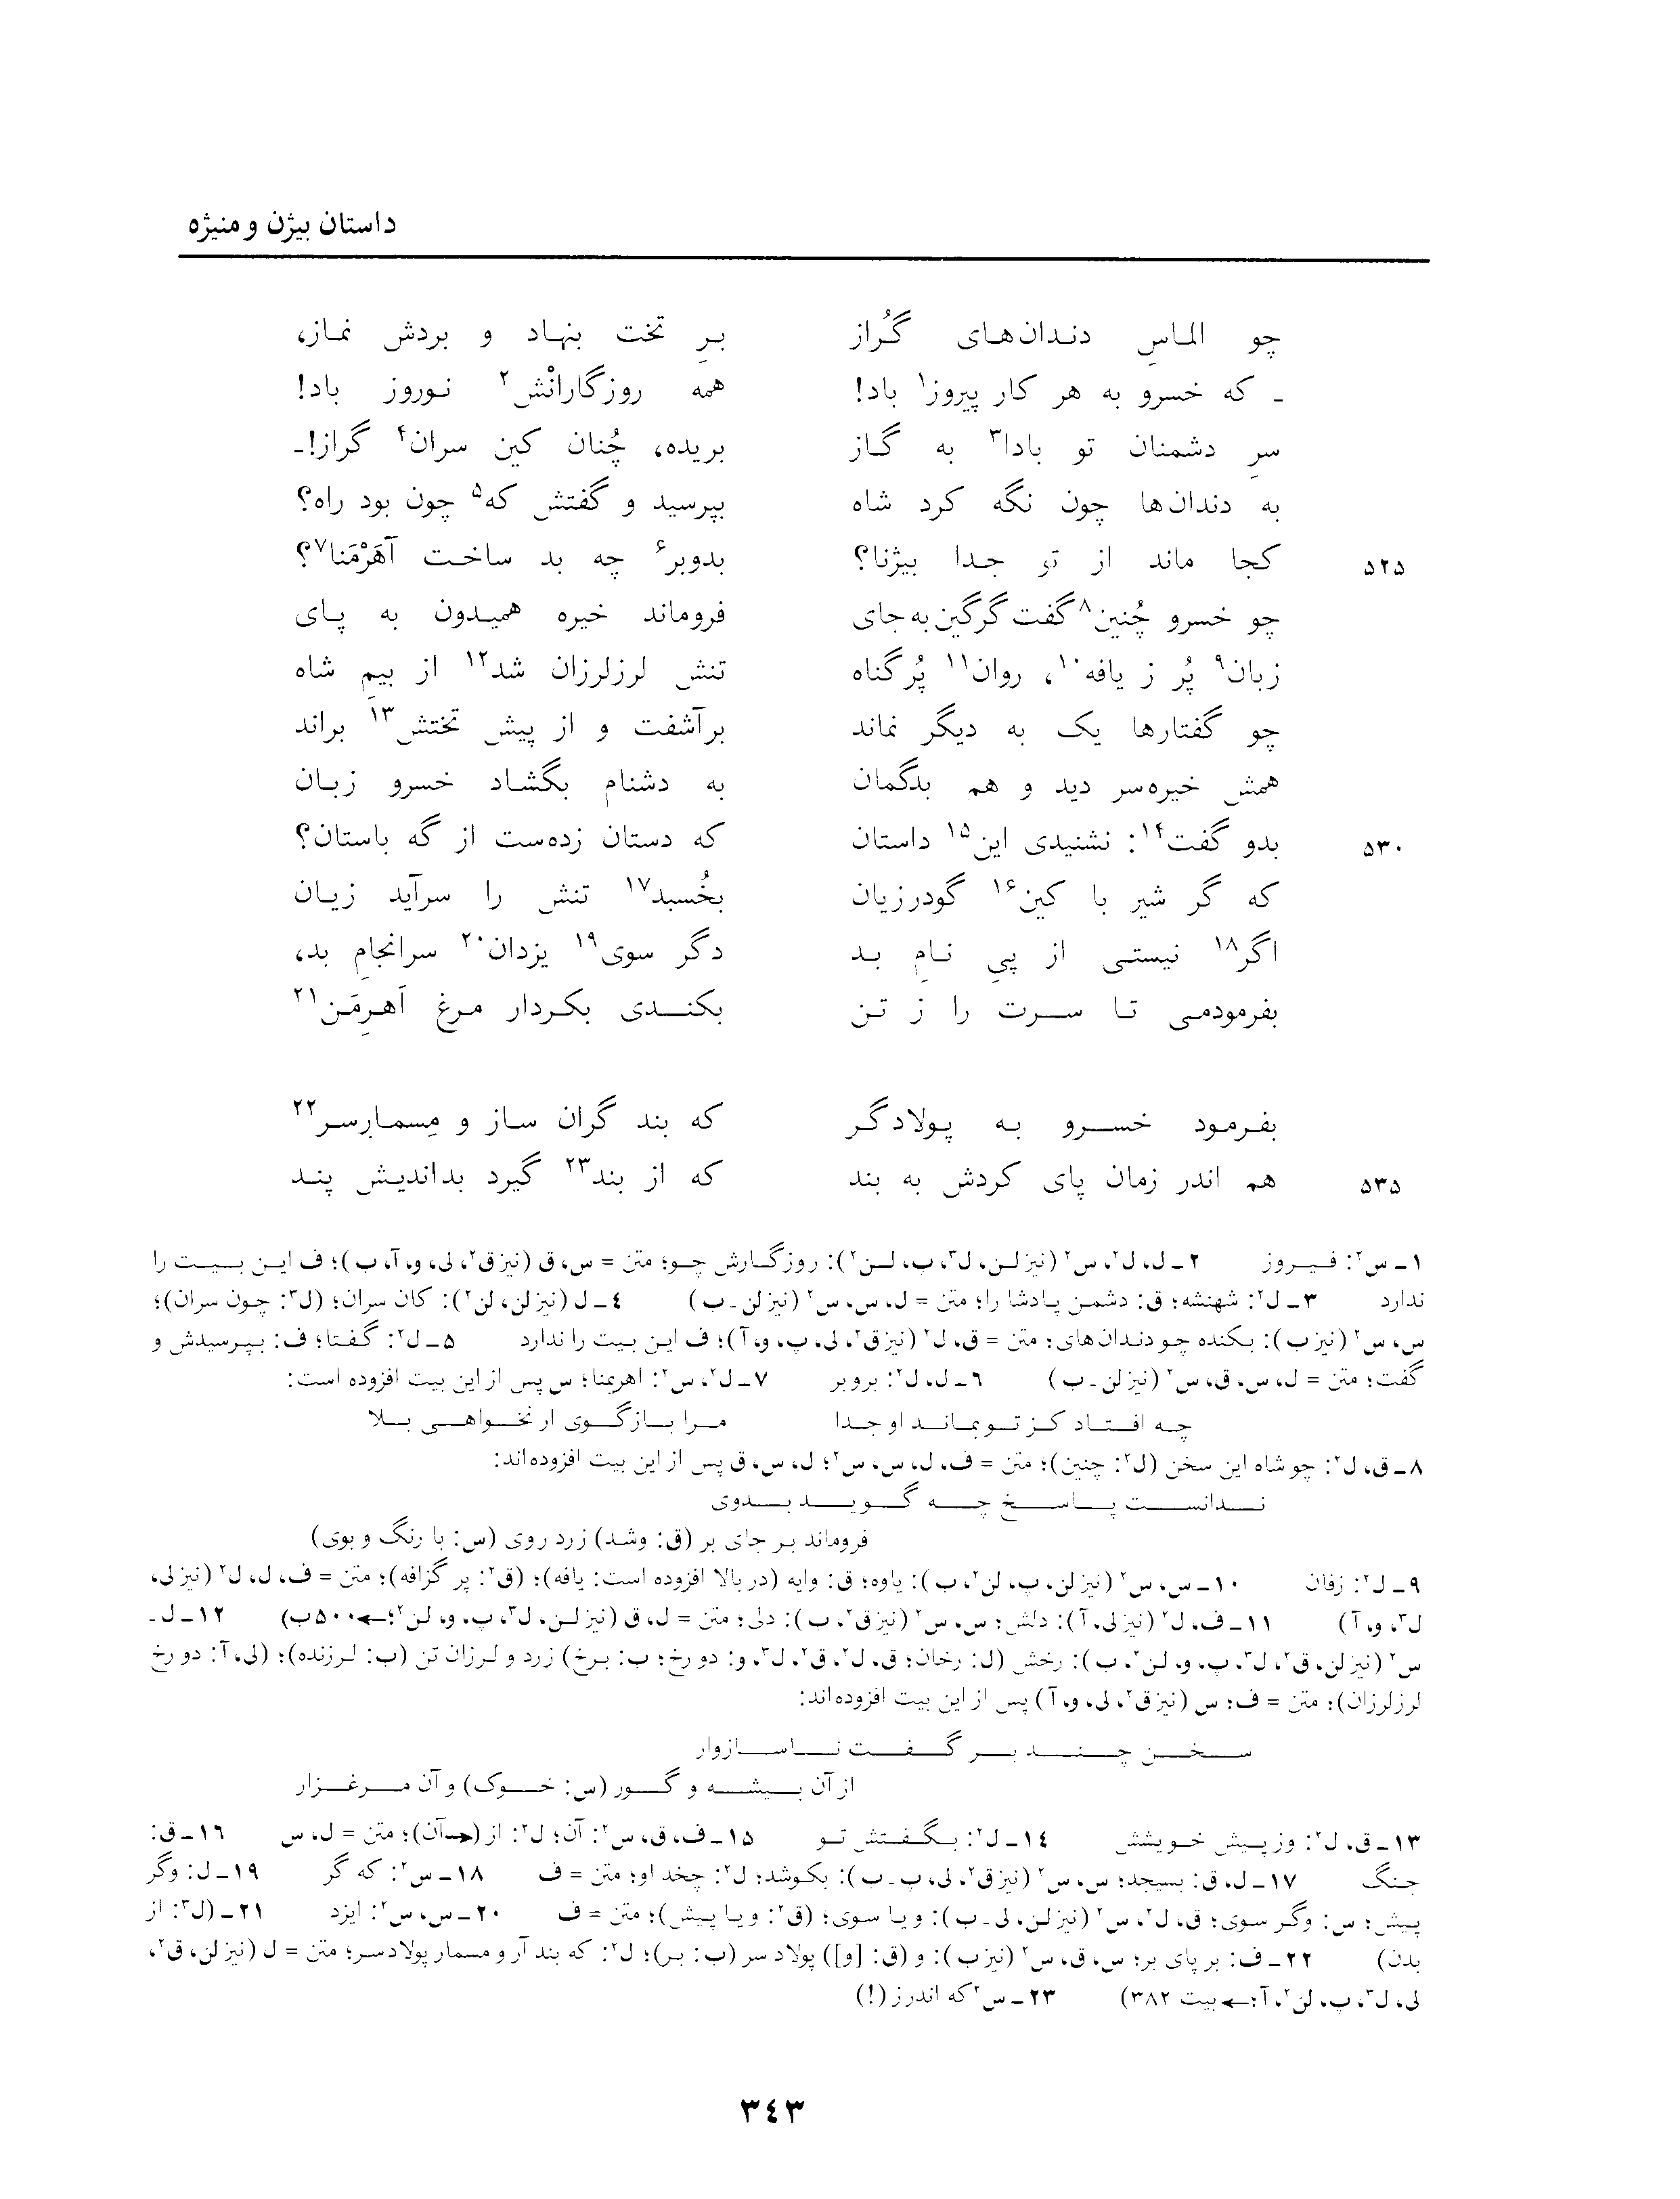 داستان بیژن و منیژه
چو الماسِ دندان‌های گُراز    برِ تخت بنهاد و بردش نماز،
ـ که خسرو به هر کار پیروز۱ باد!    همه روزگارانْش۲ نوروز باد!
سرِ دشمنان تو بادا۳ به گاز    بریده، چُنان کین سران۴ گراز!ـ
به دندان‌ها چون نگه کرد شاه    بپرسید و گفتش که۵ چون بود راه؟
۵۲۵    کجا ماند از تو جدا بیژنا؟    بدوبر۶ چه بد ساخت آهَرْمَنا۷؟
چو خسرو چُنین۸ گفت گرگین به جای    فروماند خیره همیدون به پای
زبان۹ پُر ز یافه۱۰، روان۱۱ پُرگناه    تنش لرزلرزان شد۱۲ از بیمِ شاه
چو گفتارها یک به دیگر نماند    برآشفت و از پیش تختش۱۳ براند
همش خیره‌سر دید و هم بدگمان    به دشنام بگشاد خسرو زبان
۵۳۰    بدو گفت۱۴: نشنیدی این۱۵ داستان    که دستان زده‌ست از گه باستان؟
که گر شیر با کین۱۶ گودرزیان    بخُسبد۱۷ تنش را سرآید زیان
اگر۱۸ نیستی از پیِ نامِ بد    دگر سوی۱۹ یزدان۲۰ سرانجامِ بد،
بفرمودمی تا سرت را ز تن    بکندی بکردار مرغ اَهرِمَن۲۱
بفرمود خسرو به پولادگر    که بند گران ساز و مِسمارِسر۲۲
۵۳۵    هم اندر زمان پای کردش به بند    که از بند۲۳ گیرد بداندیش پند
۱ـ س۲: فیروز    ۲ـ ل، ل۲، س۲ (نیز لن، ل۳، ب، لن۲): روزگارش چو؛ متن = س، ق (نیز ق۲، لی، و، آ، ب)؛ ف این بیت را
ندارد    ۳ـ ل۲: شهنشه؛ ق: دشمن پادشا را؛ متن = ل، س، س۲ (نیز لن ـ ب)    ۴ـ ل (نیز لن، لن۲): کان سران؛ (ل۳: چون سران)؛
س، س۲ (نیز ب): بکنده چو دندان‌های؛ متن = ق، ل۲ (نیز ق۲، لی، پ، و، آ)؛ ف این بیت را ندارد    ۵ـ ل۲: گفتا؛ ف: بپرسیدش و
گفت؛ متن = ل، س، ق، س۲ (نیز لن ـ ب)    ۶ـ ل، ل۲: بروبر    ۷ـ ل۲، س۲: اهریمنا؛ س پس از این بیت افزوده است:
چه افتاد کز تو بماند او جدا    مرا بازگوی ار نخواهی بلا
۸ـ ق، ل۲: چو شاه این سخن (ل۲: چنین)؛ متن = ف، ل، س، س۲؛ ل، س، ق پس از این بیت افزوده‌اند:
ندانست پاسخ چه گوید بدوی
فروماند بر جای بر (ق: وشد) زرد روی (س: با رنگ و بوی)
۹ـ ل۲: زفان    ۱۰ـ س، س۲ (نیز لن، پ، لن۲، ب): یاوه؛ ق: وایه (در بالا افزوده است: یافه)؛ (ق۲: پر گزافه)؛ متن = ف، ل، ل۲ (نیز لی،
ل۳، و، آ)    ۱۱ـ ف، ل۲ (نیز لی، آ): دلش؛ س، س۲ (نیز ق۲، ب): دلی؛ متن = ل، ق (نیز لن، ل۳، پ، و، لن۲؛← ۵۰۰ب)    ۱۲ـ ل ـ
س۲ (نیز لن، ق۲، ل۳، پ، و، لن۲، ب): رخش (ل: رخان؛ ق، ل۲، ق۲، ل۳، و: دو رخ؛ ب: برخ) زرد و لرزان تن (ب: لرزنده)؛ (لی، آ: دو رخ
لرزلرزان)؛ متن = ف؛ س (نیز ق۲، لی، و، آ) پس از این بیت افزوده‌اند:
سخن چند بر گفت ناسازوار
از آن بیشه و گور (س: خوک) و آن مرغزار
۱۳ـ ق، ل۲: وز پیش خویشش    ۱۴ـ ل۲: بگفتش تو    ۱۵ـ ف، ق، س۲: آن؛ ل۲: از (→آن)؛ متن = ل، س    ۱۶ـ ق:
جنگ    ۱۷ـ ل، ق: بسیجد؛ س، س۲ (نیز ق۲، لی، پ ـ ب): بکوشد؛ ل۲: چخد او؛ متن = ف    ۱۸ـ س۲: که گر    ۱۹ـ ل: وگر
پیش؛ س: وگر سوی؛ ق، ل۲، س۲ (نیز لن، لی ـ ب): ویا سوی؛ (ق۲: ویا پیش)؛ متن = ف    ۲۰ـ س، س۲: ایزد    ۲۱ـ (ل۳: از
بدن)    ۲۲ـ ف: بر پای بر؛ س، ق، س۲ (نیز ب): و (ق: [و]) پولاد سر (ب: بر)؛ ل۲: که بند آر و مسمار پولادسر؛ متن = ل (نیز لن، ق۲،
لی، ل۳، پ، لن۲، آ؛← بیت ۳۸۲)    ۲۳ـ س۲ که اندرز (!)
۳۴۳